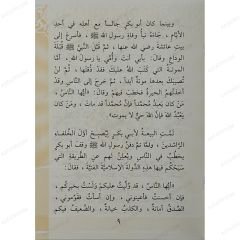 وبينما كان أبو بكرٍ جالساً مع أهله في أحد
الأيّام ، جاءهُ نبأُ وفاةِ رسول الله ﷺ فأسرعَ إلى
بيتِ عائشةَ رضي الله عنها ، ثمّ قبّلَ النبيَّ ﷺ قبلةَ
الوداعِ وقال : بأبي أنتَ وأُمّي يا رسولَ الله ، أمّا
الموتةُ التي كتبَ اللهُ عليكَ فقد ذُقتَها ، ثم لن
تُصيبكَ بعدها موتةٌ أبداً . ثم خرجَ إلى الناسِ وقد
أصابهم الذهولُ والحيرةُ فخطبَ فيهم وقال : «أيّها الناسُ ،
مَن كانَ يعبدُ محمداً فإنَّ محمداً قد مات ، ومَن كانَ
يعبدُ اللهَ فإنَّ اللهَ حيٌّ لا يموت» .
تمّتِ البيعةُ لأبي بكرٍ ليُصبحَ أوّلَ الخلفاءِ
الرّاشدين . ولمّا تمّتْ بيعتُهُ صعدَ المنبرَ
يخطُبُ في الناسِ ويُعلِنُ لهم عن الطريقةِ التي
سيحكمُ فيها هذه الدولةَ الإسلاميّةَ الفتيّةَ ، فقال :
«أيّها النّاسُ ، قد وُلّيتُ عليكم ولستُ بخيركم ،
فإن أحسنتُ فأعينوني ، وإن أسأتُ فقوّموني ،
الصدقُ أمانةٌ ، والكذبُ خيانةٌ ، والضعيفُ فيكم
٩